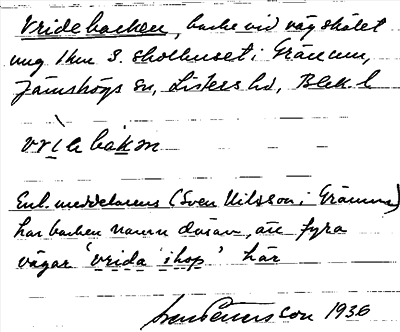 Vridebacken, backe vid vägskälet
ung 1 km S. skolhuset i Gränum,
Jämshögs sn, Listers hd, Blek. l
Enl. meddelarens (Sven Nilsson i Gränum)
har backen namn därav, att fyra
vägar 'vrida ihop' här
Sven Petersson 1936